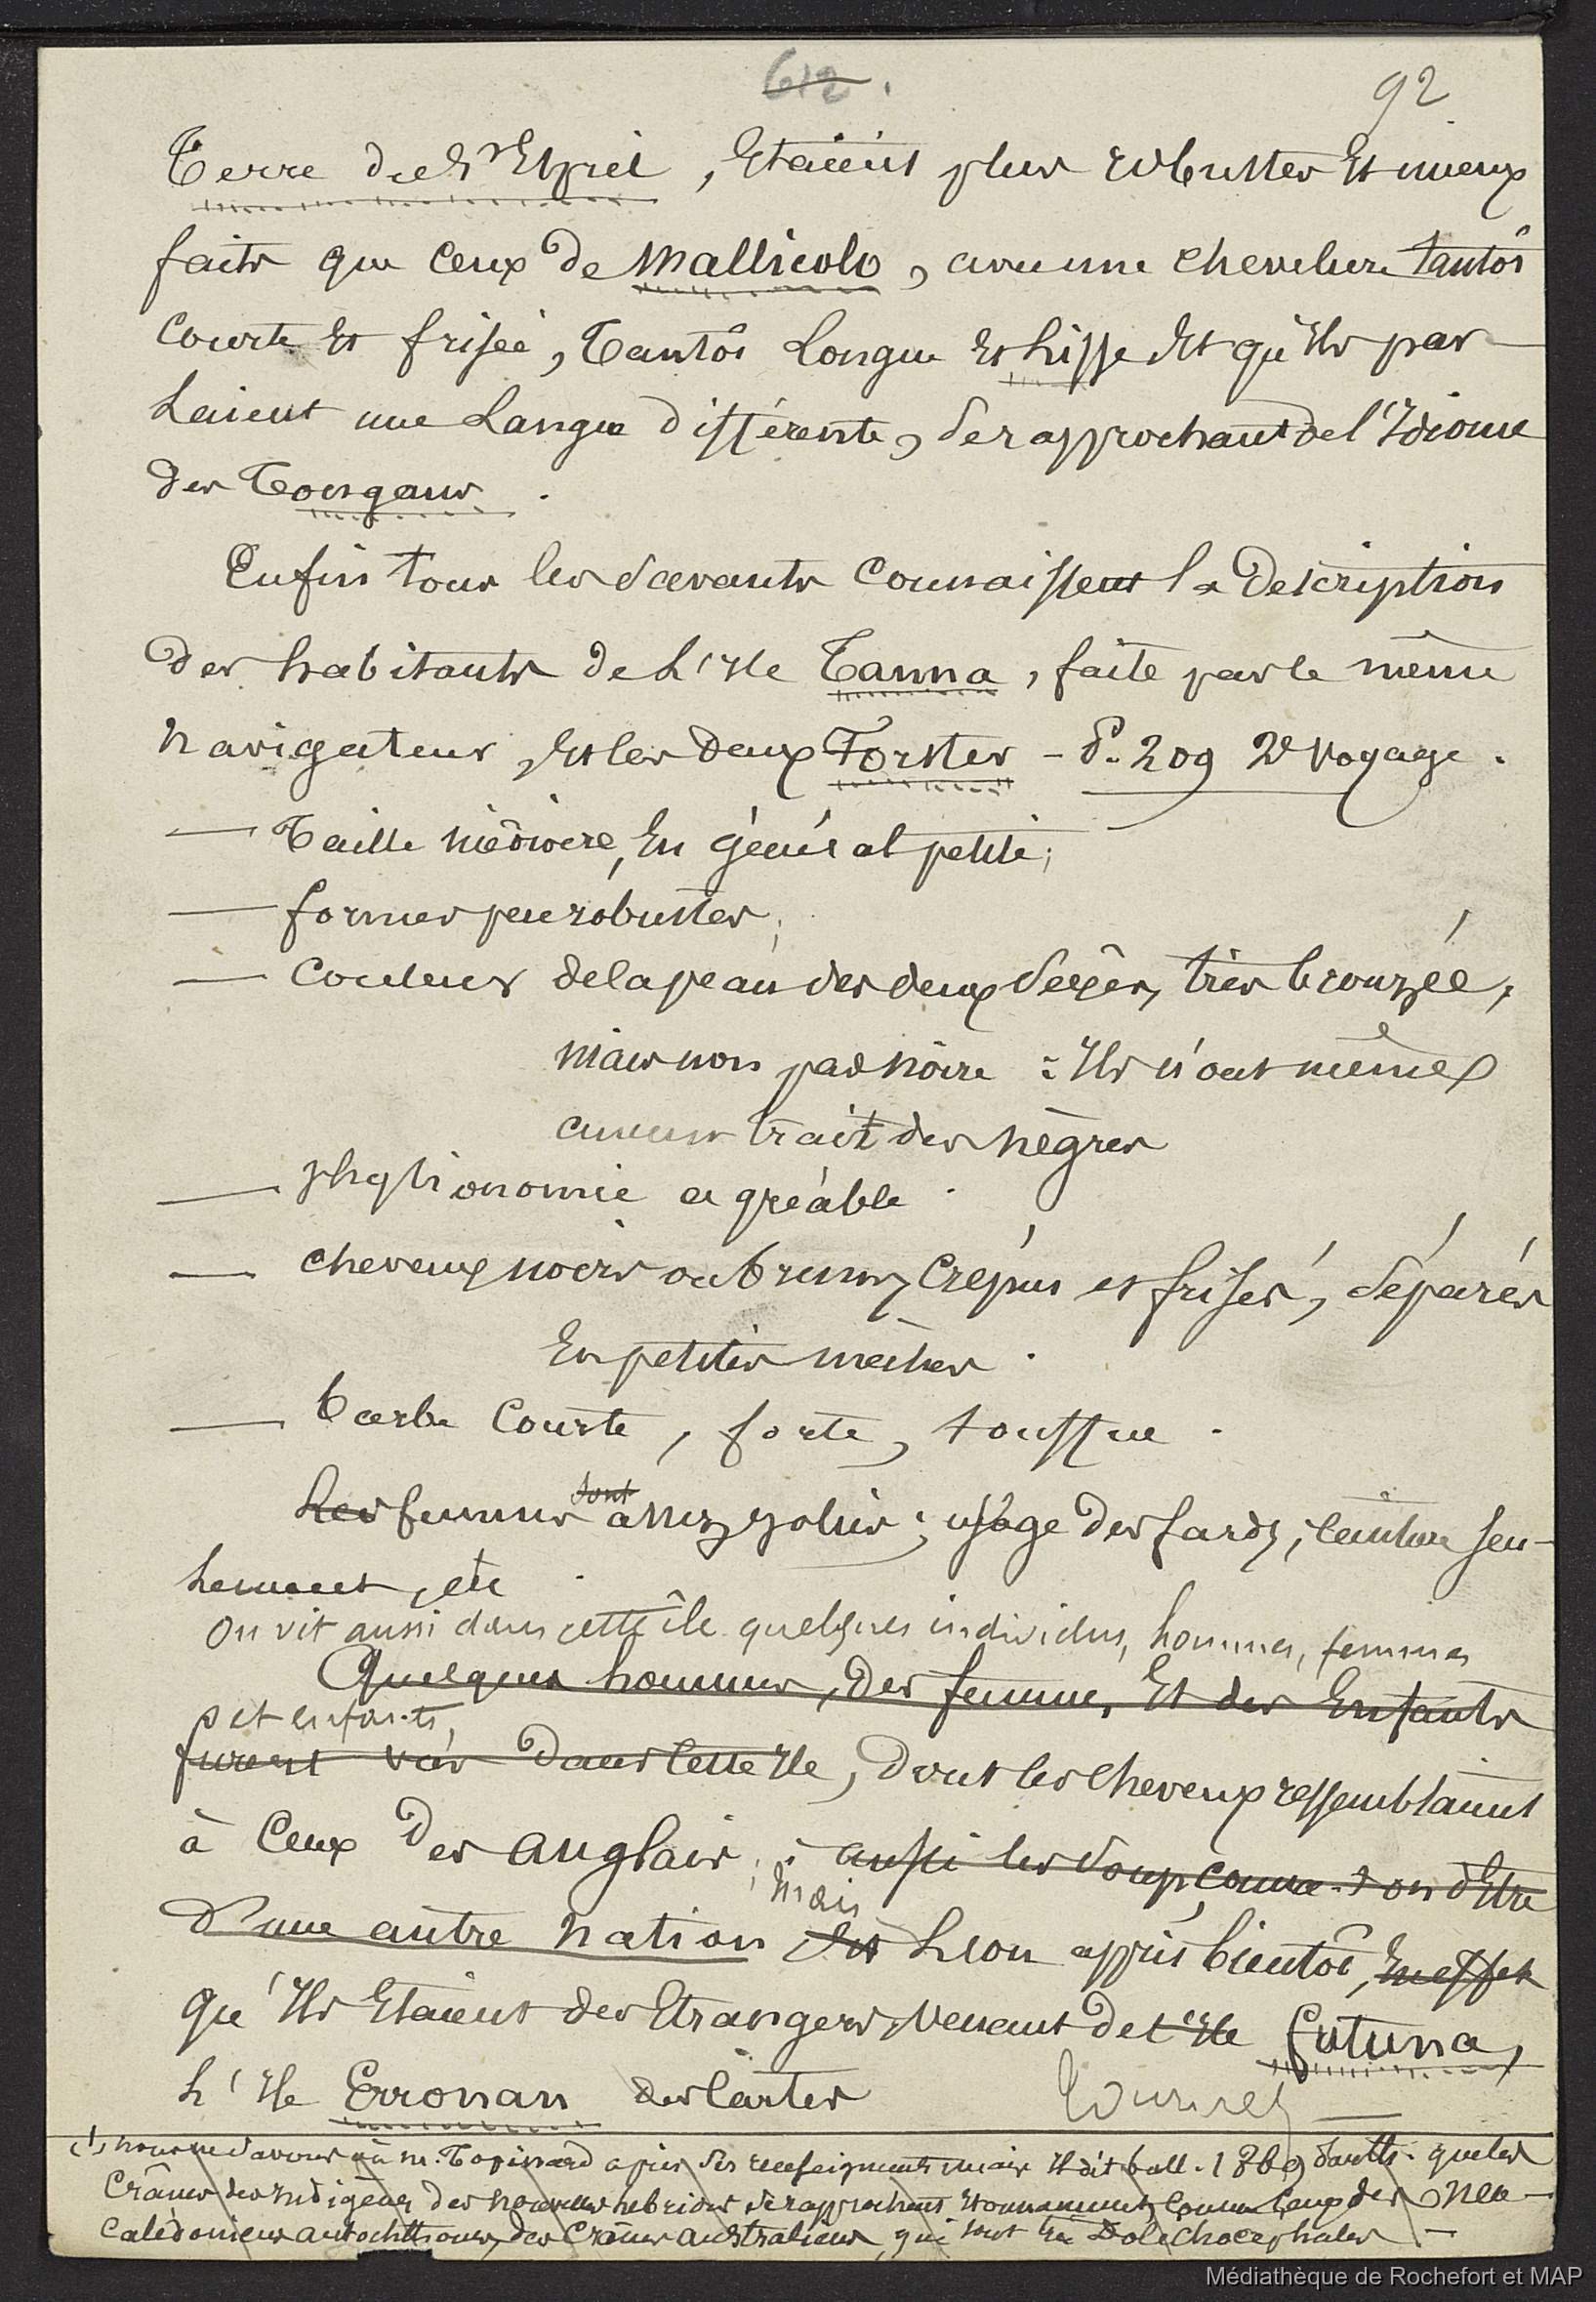 612.
92
Terre du St Esprit, Etaient plus robustes Et mieux
faits que Ceux de Mallicolo, avec une chevelure tantôt
Courte Et frisée, Tantôt Longue Et Lisse Et qu'Ils par-
Laient une Langue différente, Se rapprochant de l'Idiome
des Tongans.
Enfin tous les Savants Connaissent la Description
des habitants de L'Ile Tanna, faite par le même
Navigateur, Et les deux Forster - P. 209 2e Voyage.
— Taille médiocre, En général petite;
— formes peu robustes;
— Couleur de la peau des deux Sexes, très bronzée,
mais non pas noire : Ils n'ont même
aucun trait des nègres
— physionomie agréable.
— cheveux noirs ou bruns, Crépus et frisés, Séparés
En petites mèches.
— barbe Courte, forte, touffue.
Les femmes sont assez jolies; usage des fards, ceinture seu-
Lement, etc.
On vit aussi dans cette île quelques individus, hommes, femmes
Quelques hommes, Des femmes, Et des Enfants
et enfants,
furent vus Dans Cette Ile, Dont les Cheveux ressemblaient
à Ceux Des Anglais; aussi les Soupçonna-t-on d'Etre
D'une autre Nation Et L'on apprit bientôt, En effet
Mais
qu'Ils Etaient des Etrangers, Venant de l'Ile Futuna,
L'Ile Erronan des Cartes
Tournez
(1) nous ne Savons où M. Topinard a pris Ses renseignements mais Il dit bull. 1869 que les
Crânes des Indigènes des Nouvelles hébrides Se rapprochent Etonnamment, Comme Ceux des Néo-
Calédoniens autochthones, des Crânes australiens, qui sont très Dolichocéphales —
Médiathèque de Rochefort et MAP